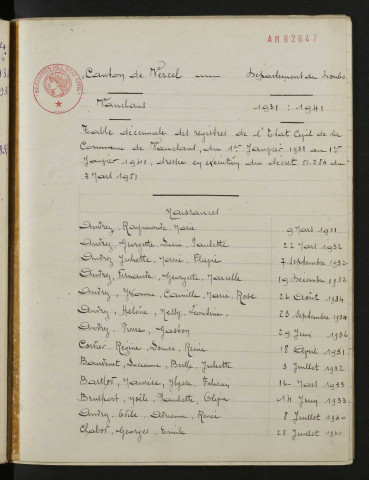 AM 82647
Canton de Vercel — Département du Doubs
Vanclans 1931 : 1941
Table décennale des registres de l'Etat Civil de la
Commune de Vanclans, du 1er Janvier 1931 au 1er
Janvier 1941, dressée en exécution du décret 51.284 du
3 Mars 1951
Naissances
Andrey, Raymonde, Marie 9 Mars 1931
Andrey, Georgette, Paulette 22 Mars 1932
Andrey, Juliette, Marie 7 Septembre 1932
Andrey, Fernande, Georgette, Marcelle 19 Décembre 1932
Andrey, Yvonne, Camille, Marie, Rose 26 Août 1934
Andrey, Hélène, Nelly, Léontine 23 Septembre 1934
Andrey, Pierre, Gaston 29 Juin 1936
Cortier, Régine, Louise, Renée 18 Avril 1931
Lucienne, Berthe, Juliette 3 Juillet 1932
Maurice, Félicien 16 Mars 1933
Noële, Paulette, Olga 14 Juin 1933
Andrey, Odile, Adrienne, Renée 8 Juillet 1940
Chabod, Georges, Emile 28 Juillet 1940